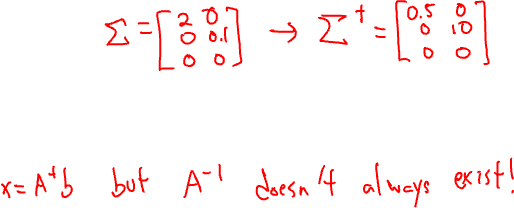 Σ = [2 0 → Σ⁺ = [0.5 0
0 0.1 0 10
0 0] 0 0]
x = A⁺b but A⁻¹ doesn't always exist!